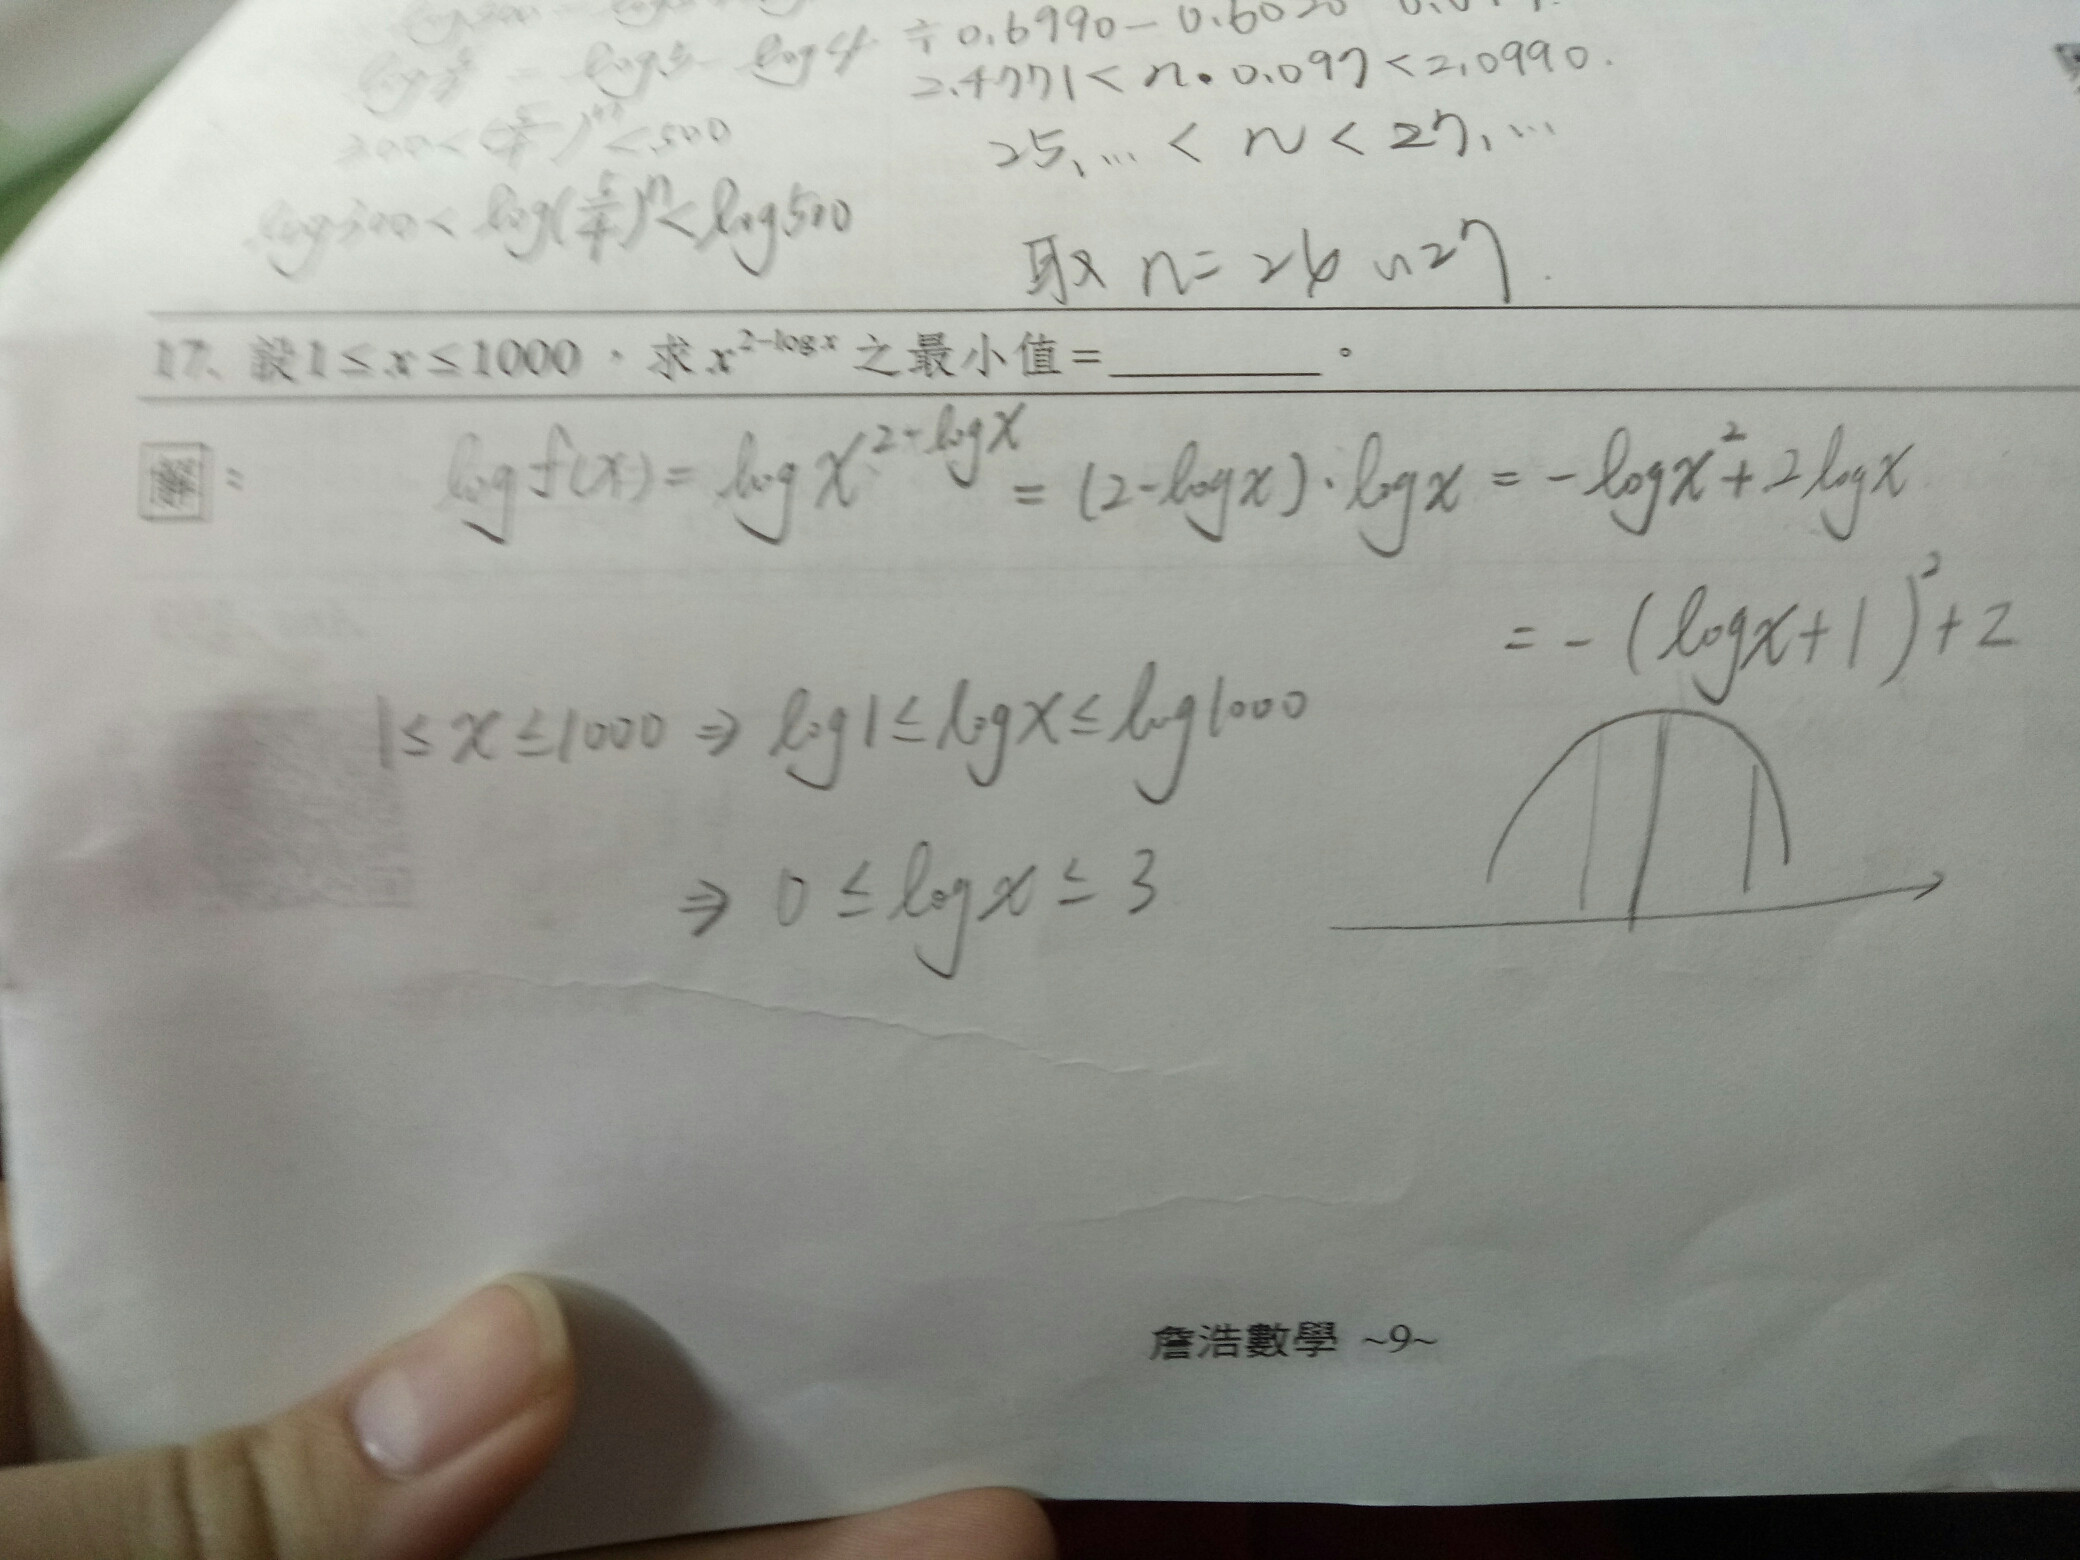 ÷ 0.6990 - 0.6020
log 5/4 = log5 - log4
2.4771 < n • 0.097 < 2,0990.
300 < (5/4)^n < 500
25,... < n < 27,...
log300 < log(5/4)^n < log500
取 n = 26 27
17、設1≤x≤1000，求x^{2-logx}之最小值=________。
解：
log f(x) = log x^{2-logx} = (2-logx)·logx = -logx^2 + 2logx
= -(logx+1)^2 + 2
1≤x≤1000 ⇒ log1≤logx≤log1000
⇒ 0≤logx≤3
詹浩數學 ~9~